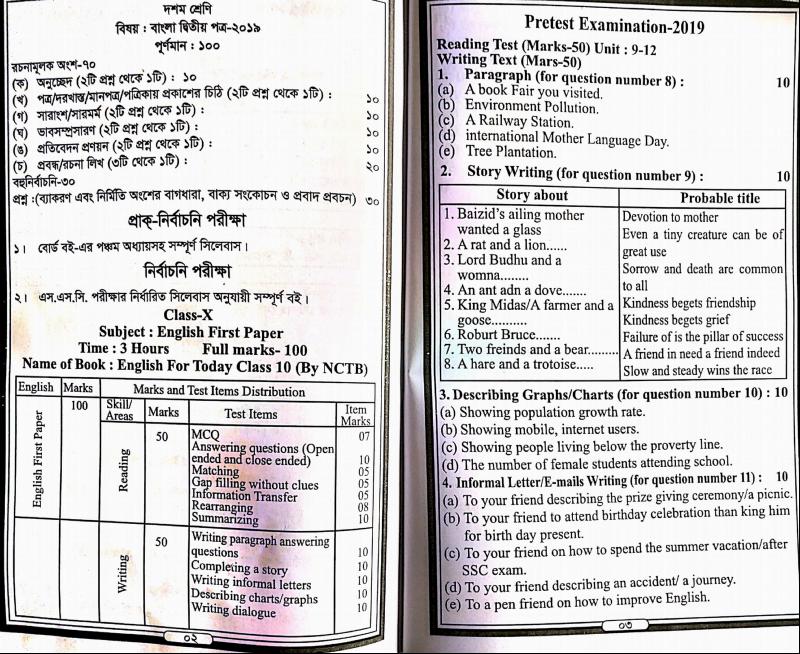 দশম শ্রেণি
বিষয় : বাংলা দ্বিতীয় পত্র-২০১৯
পূর্ণমান : ১০০
রচনামূলক অংশ-৭০
(ক) অনুচ্ছেদ (২টি প্রশ্ন থেকে ১টি) : ১০
(খ) পত্র/দরখাস্ত/মানপত্র/পত্রিকায় প্রকাশের চিঠি (২টি প্রশ্ন থেকে ১টি) : ১০
(গ) সারাংশ/সারমর্ম (২টি প্রশ্ন থেকে ১টি) : ১০
(ঘ) ভাবসম্প্রসারণ (২টি প্রশ্ন থেকে ১টি) : ১০
(ঙ) প্রতিবেদন প্রণয়ন (২টি প্রশ্ন থেকে ১টি) : ১০
(চ) প্রবন্ধ/রচনা লিখ (৩টি থেকে ১টি) : ২০
বহুনির্বাচনি-৩০
প্রশ্ন :(ব্যাকরণ এবং নির্মিতি অংশের বাগধারা, বাক্য সংকোচন ও প্রবাদ প্রবচন) ৩০
প্রাক্-নির্বাচনি পরীক্ষা
১। বোর্ড বই-এর পঞ্চম অধ্যায়সহ সম্পূর্ণ সিলেবাস।
নির্বাচনি পরীক্ষা
২। এস.এস.সি. পরীক্ষার নির্ধারিত সিলেবাস অনুযায়ী সম্পূর্ণ বই।
Class-X
Subject : English First Paper
Time : 3 Hours Full marks- 100
Name of Book : English For Today Class 10 (By NCTB)
English Marks Marks and Test Items Distribution
English First Paper 100 Skill/ Areas Marks Test Items Item Marks
Reading 50 MCQ 07
Answering questions (Open
ended and close ended) 10
Matching 05
Gap filling without clues 05
Information Transfer 05
Rearranging 08
Summarizing 10
Writing 50 Writing paragraph answering
questions 10
Completing a story 10
Writing informal letters 10
Describing charts/graphs 10
Writing dialogue 10
০২
Pretest Examination-2019
Reading Test (Marks-50) Unit : 9-12
Writing Text (Mars-50)
1. Paragraph (for question number 8) : 10
(a) A book Fair you visited.
(b) Environment Pollution.
(c) A Railway Station.
(d) international Mother Language Day.
(e) Tree Plantation.
2. Story Writing (for question number 9) : 10
Story about Probable title
1. Baizid's ailing mother
wanted a glass
2. A rat and a lion......
3. Lord Budhu and a
womna........
4. An ant adn a dove.......
5. King Midas/A farmer and a
goose..........
6. Roburt Bruce.......
7. Two freinds and a bear.........
8. A hare and a trotoise.....
Devotion to mother
Even a tiny creature can be of
great use
Sorrow and death are common
to all
Kindness begets friendship
Kindness begets grief
Failure of is the pillar of success
A friend in need a friend indeed
Slow and steady wins the race
3. Describing Graphs/Charts (for question number 10) : 10
(a) Showing population growth rate.
(b) Showing mobile, internet users.
(c) Showing people living below the proverty line.
(d) The number of female students attending school.
4. Informal Letter/E-mails Writing (for question number 11) : 10
(a) To your friend describing the prize giving ceremony/a picnic.
(b) To your friend to attend birthday celebration than king him
for birth day present.
(c) To your friend on how to spend the summer vacation/after
SSC exam.
(d) To your friend describing an accident/ a journey.
(e) To a pen friend on how to improve English.
০৩